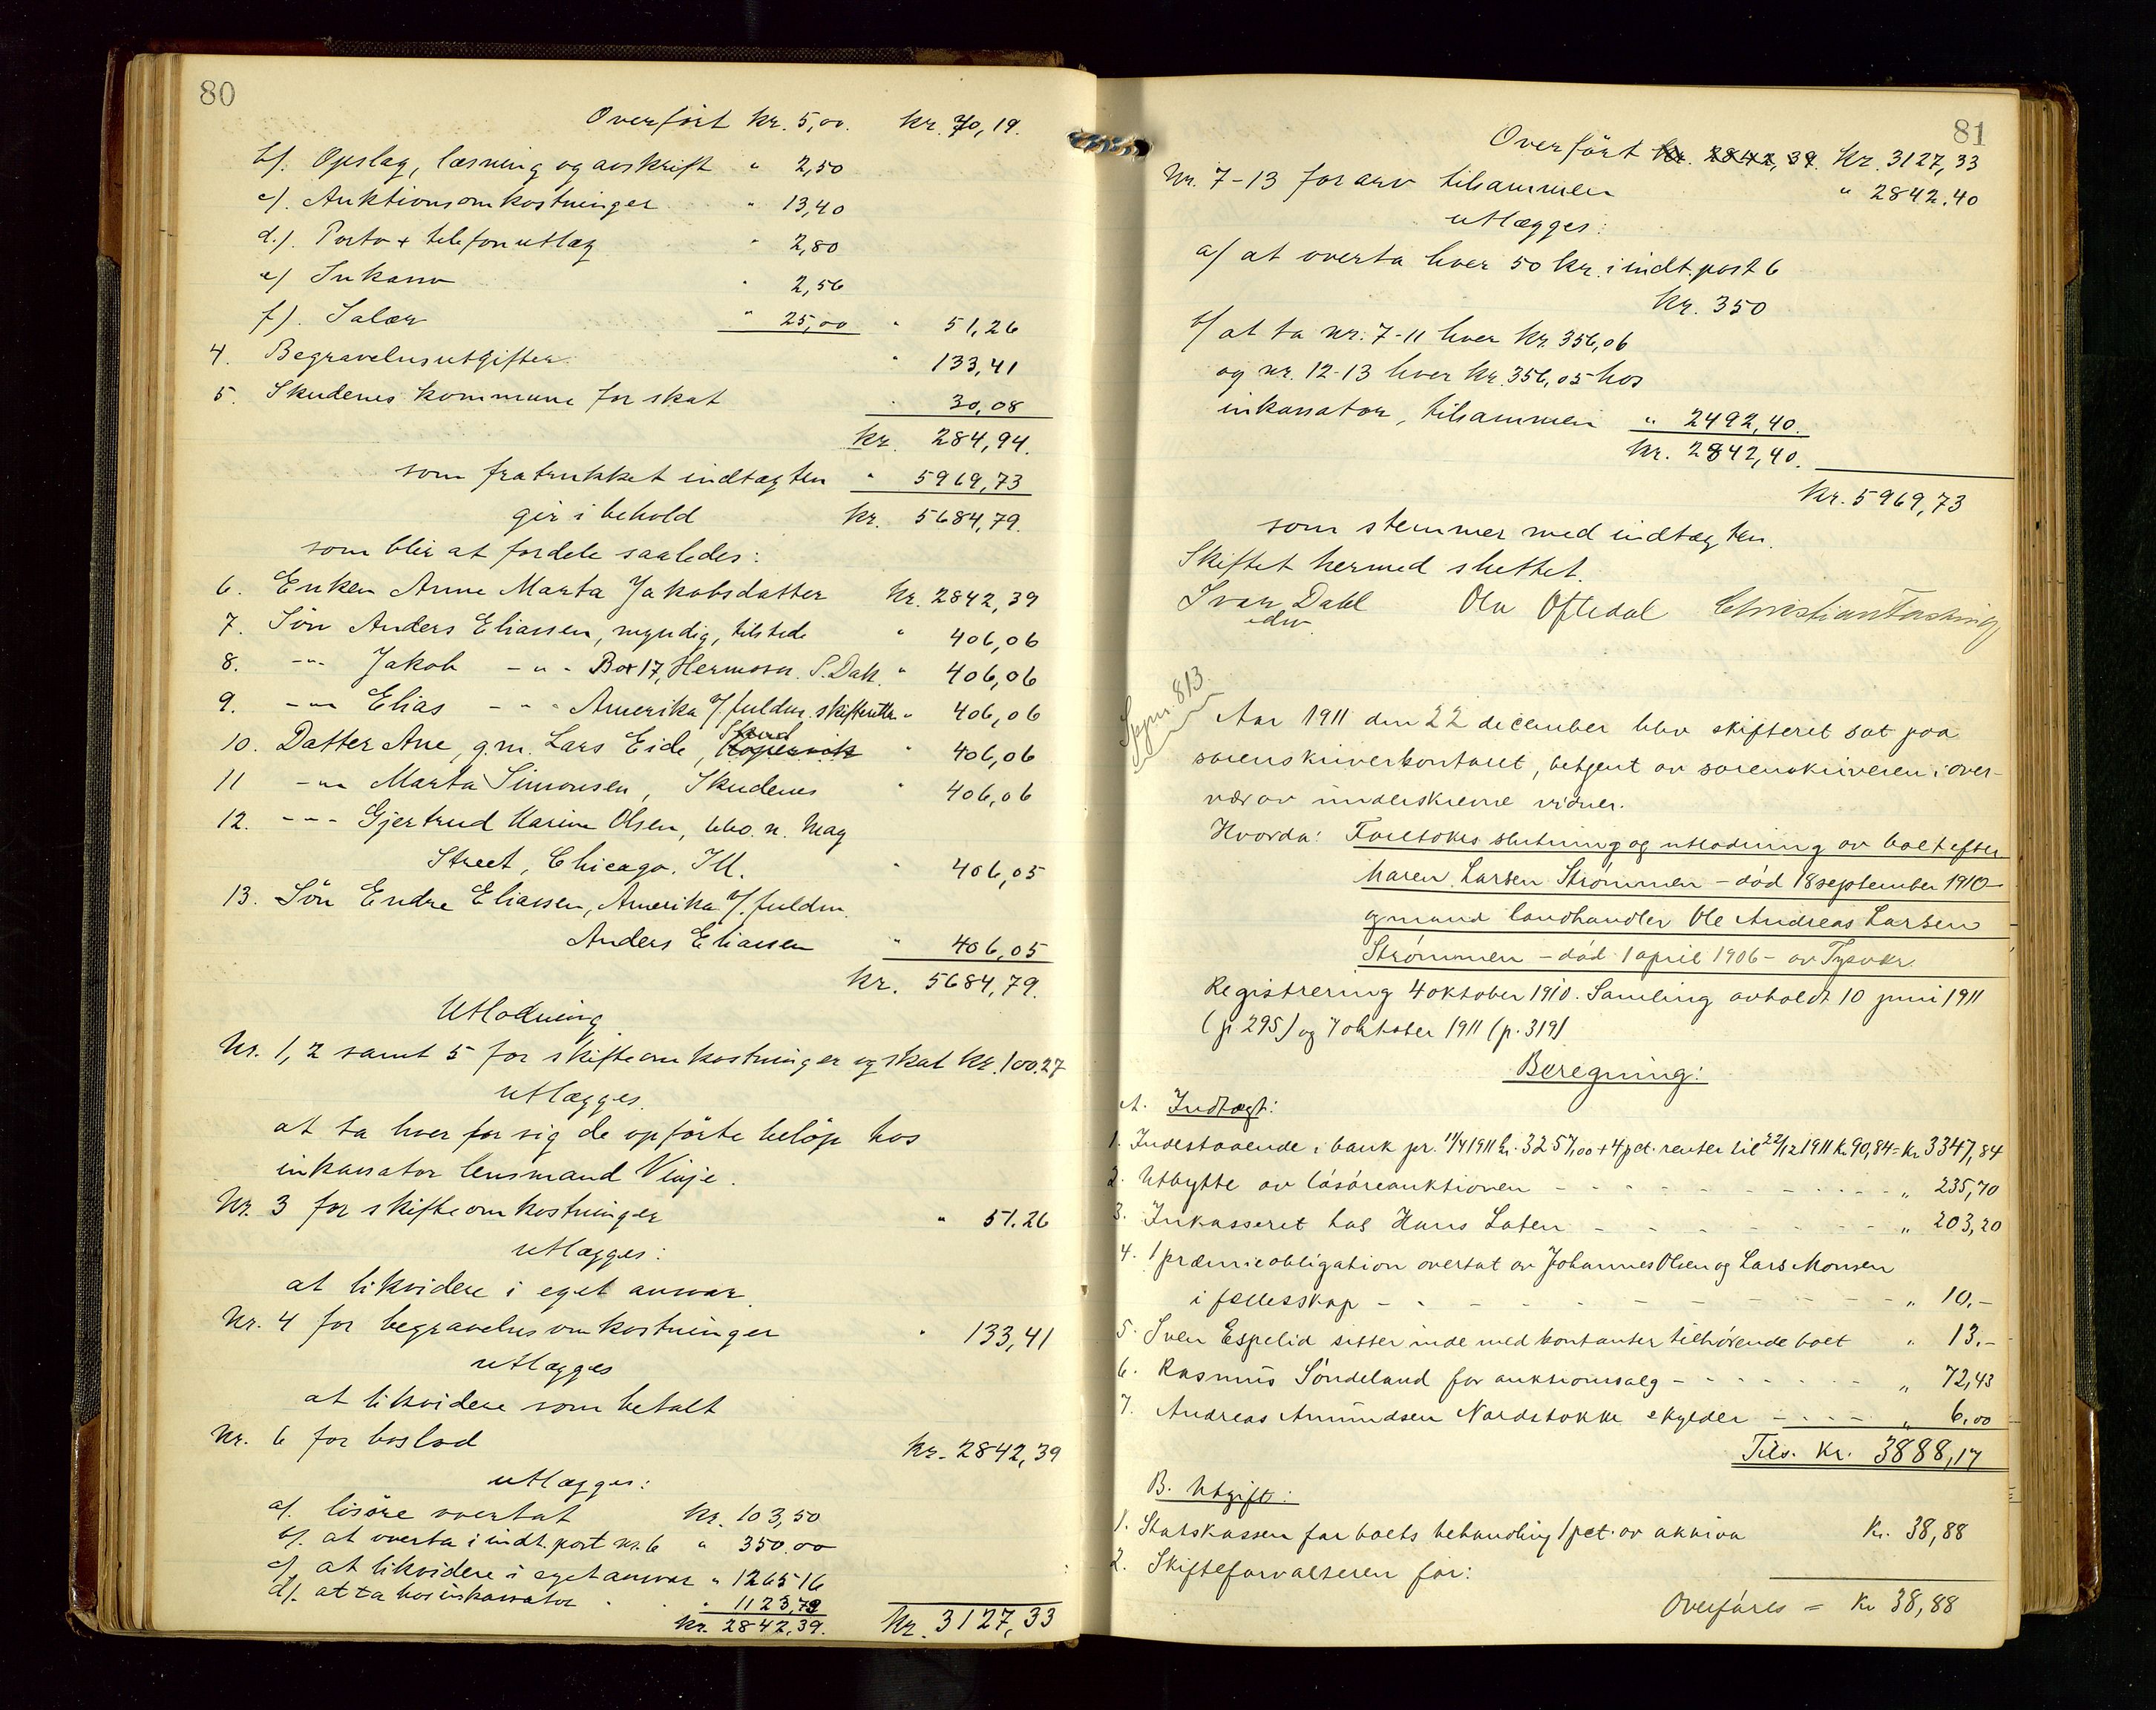 80
Overført kr. 5,00. kr. 70,19.
b). Opslag, læsning og avskrift " 2,50
c). Auktionsomkostninger " 13,40
d.). Porto + telefonutlæg " 2,80
e) Inkasso " 2,56
f). Salær " 25,00 " 51,26
4. Begravelsesutgifter " 133,41
5. Skudenes kommune for skat " 30,08
kr. 284,94.
som fratrukket indtægten " 5969,73
gir i behold kr. 5684,79.
som blir at fordele saaledes:
6. Enken Anne Marta Jakobsdatter kr. 2842,39
7. Søn Anders Eliassen, myndig, tilstede " 406,06
8. -"- Jakob -"- Box 17, Hermosa. S. Dak. " 406,06
9. -"- Elias -"- Amerika v/ fuldm. skifteretten " 406,06
10. Datter Ane, g.m. Lars Eide, Kopervik Stend " 406,06
11 -"- Marta Simonsen, Skudenes " 406,06
12. -"- Gjertrud Karine Olsen, 660. n. May
Street, Chicago. Ill. " 406,05
13. Søn Endre Eliassen, Amerika v/. fuldm.
Anders Eliassen " 406,05
kr. 5684,79.
Utlodning
Nr. 1, 2 samt 5 for skifteomkostninger og skat kr. 100.27
utlægges.
at ta hver for sig de opførte beløp hos
inkassator lensmand Vinje.
Nr. 3 for skifteomkostninger " 51.26
utlægges:
at likvidere i eget ansvar.
Nr. 4 for begravelsesomkostninger " 133,41
utlægges
at likvidere som betalt
Nr. 6 for boslod kr. 2842,39
utlægges:
a). løsøre overtat kr. 103,50
b). at overta i indt. post nr. 6 " 350.00
c). at likvidere i eget ansvar " 1265 16
d). at ta hos inkassator " 1123,73
kr. 2842,39. kr. 3127,33
81
Overført kr. 2842,39. kr. 3127,33
Nr. 7-13 for arv tilsammen " 2842.40
utlægges:
a) at overta hver 50 kr. i indt. post 6
kr. 350
b) at ta nr. 7-11 hver kr. 356,06
og nr. 12-13 hver kr. 356,05 hos
inkassator, tilsammen " 2492,40.
kr. 2842,40.
kr. 5969,73
som stemmer med indtægten.
Skiftet hermed sluttet.
Ivar Dahl Ola Oftedal Christian Fasting
edv.
813.
Aar 1911 den 22 december blev skifteret sat paa
sorenskriverkontoret, betjent av sorenskriveren i over-
vær av underskrevne vidner.
Hvorda: Foretokes slutning og utlodning av boet efter
Maren Larsen Strømmen - død 18 september 1910
og mand landhandler Ole Andreas Larsen
Strømmen - død 1 april 1906 - av Tysvær.
Registrering 4 oktober 1910. Samling avholdt 10 juni 1911
(p 295) og 7 oktober 1911 (p. 319)
Beregning:
A. Indtægt:
1. Indestaaende i bank pr. 11/4 1911 kr. 3257,00 + 4 pct. renter til 22/12 1911 kr. 90,84 = kr 3347,84
2. Utbytte av løsøreauktionen - - - " 235,70
3. Inkasseret hos Hans Laten - - - " 203,20
4. 1 præmieobligation overtat av Johannes Olsen og Lars Monsen
i fællesskap - - - " 10.-
5. Sven Espelid sitter inde med kontanter tilhørende boet " 13.-
6. Rasmus Søndeland for auktionssalg - - - " 72,43
7. Andreas Amundsen Nordstokke skylder - - - " 6,00
Tils. kr. 3888,17
B. Utgift:
1. Statskassen for boets behandling 1 pct. av aktiva kr. 38,88
2. Skifteforvalteren for:
Overføres = kr 38,88